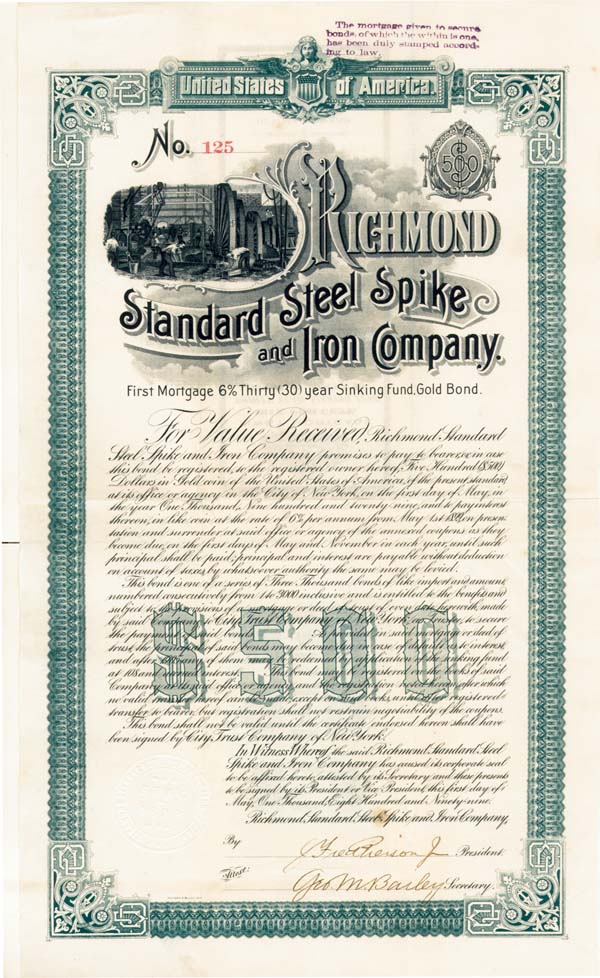 The mortgage given to secure
bonds, of which the within is one,
has been duly stamped accord-
ing to law.
United States of America.
No. 125
$500
Richmond
Standard Steel Spike
and Iron Company.
First Mortgage 6% Thirty (30) year Sinking Fund, Gold Bond.
For Value Received, Richmond Standard
Steel Spike and Iron Company promises to pay to bearer, or in case
this bond be registered, to the registered owner hereof, Five Hundred ($500)
Dollars in Gold coin of the United States of America, of the present standard,
at its office or agency in the City of New York, on the first day of May, in
the year One Thousand, Nine hundred and twenty-nine, and to pay interest
thereon, in like coin at the rate of 6% per annum from May 1st 1899, on presen-
tation and surrender at said office or agency of the annexed coupons as they
become due, on the first days of May and November in each year, until such
principal shall be paid, principal and interest are payable without deduction
on account of taxes, by whatsoever authority the same may be levied.
This bond is one of a series of Three Thousand bonds of like import and amount,
numbered consecutively from 1 to 3000 inclusive and is entitled to the benefits and
subject to the provisions of a mortgage or deed of trust of even date herewith, made
by said Company to City Trust Company of New York, as trustee, to secure
the payment of said bonds. As provided in said mortgage or deed of
trust, the principal of said bonds may become due in case of default as to interest,
and after of them redeemable application of the sinking fund
at 108 and interest. bond may registered books of said
Company at its said office or agency, and registration after which
no valid transfer hereof can be made, except on said books, until after registered
transfer to bearer, but registration shall not restrain negotiability of the coupons.
This bond shall not be valid until the certificate endorsed hereon shall have
been signed by City Trust Company of New York.
$500
In Witness Whereof the said Richmond, Standard Steel
Spike and Iron Company has caused its corporate seal
to be affixed hereto, attested by its Secretary and these presents
to be signed by its President or Vice President, this first day of
May, One Thousand, Eight Hundred and Ninety-nine.
Richmond Standard Steel Spike and Iron Company,
By President
Attest:
Geo. M. Bailey Secretary.